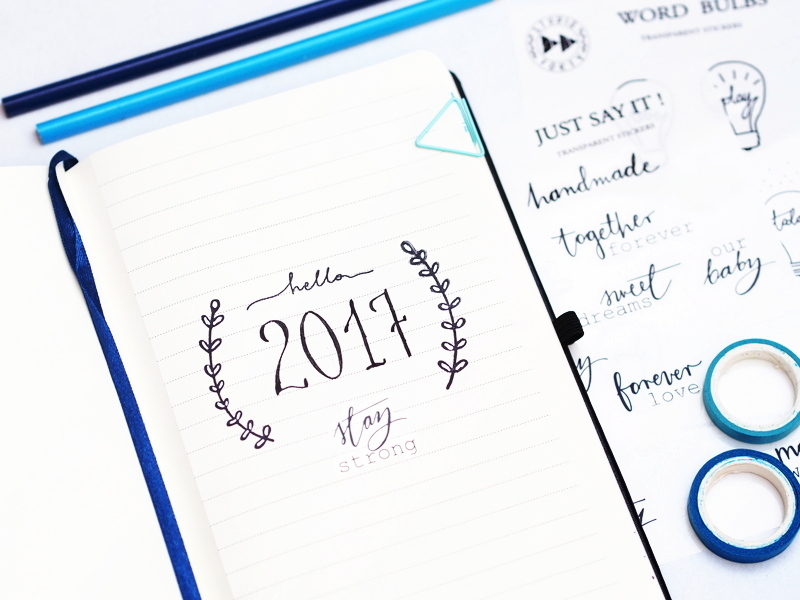 hello
2017
stay
strong
WORD BULBS
TRANSPARENT STICKERS
play
JUST SAY IT !
TRANSPARENT STICKERS
handmade
together
forever
our
sweet
baby
dreams
forever
love